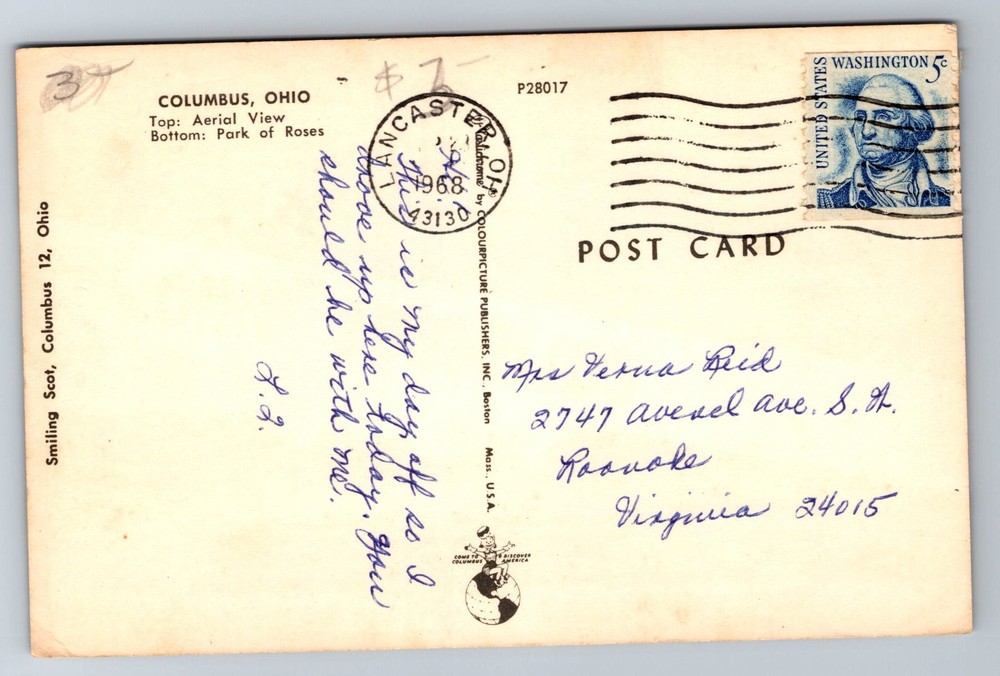 3
$ 7-
COLUMBUS, OHIO
Top: Aerial View
Bottom: Park of Roses
P28017
LANCASTER, OH
1968
43130
UNITED STATES
WASHINGTON 5c
POST CARD
Smiling Scot, Columbus 12, Ohio
Plastichrome® by COLOURPICTURE PUBLISHERS, INC., Boston Mass., U.S.A.
Hi
This is my day off so I
drove up here today. You
should be with me.
Mrs Verna Reid
2747 Avenel Ave. S.W.
Roanoke
Virginia 24015
COME TO COLUMBUS & DISCOVER AMERICA